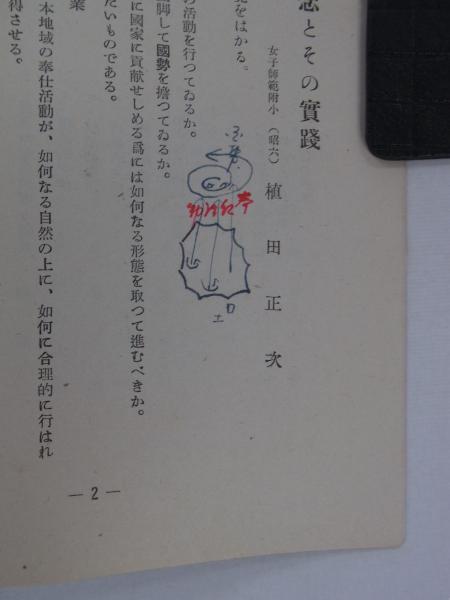 念とその實踐
女子師範附小 (昭六) 植田正次
をはかる。
の活動を行つてゐるか。
脚して國勢を擔つてゐるか。
に國家に貢献せしめる爲には如何なる形態を取つて進むべきか。
たいものである。
業
本地域の奉仕活動が、如何なる自然の上に、如何に合理的に行はれ
得させる。
— 2 —